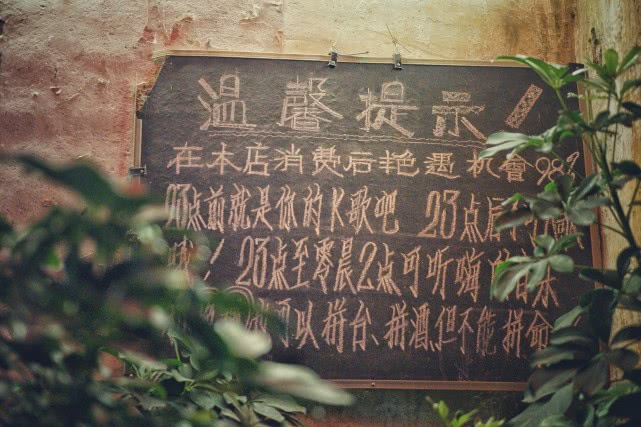 温馨提示！
在本店消费后艳遇机會98%
23点前就是你的K歌吧 23点后
哦！23点至零晨2点可听嗨
可以拼台、拼酒、但不能拼命